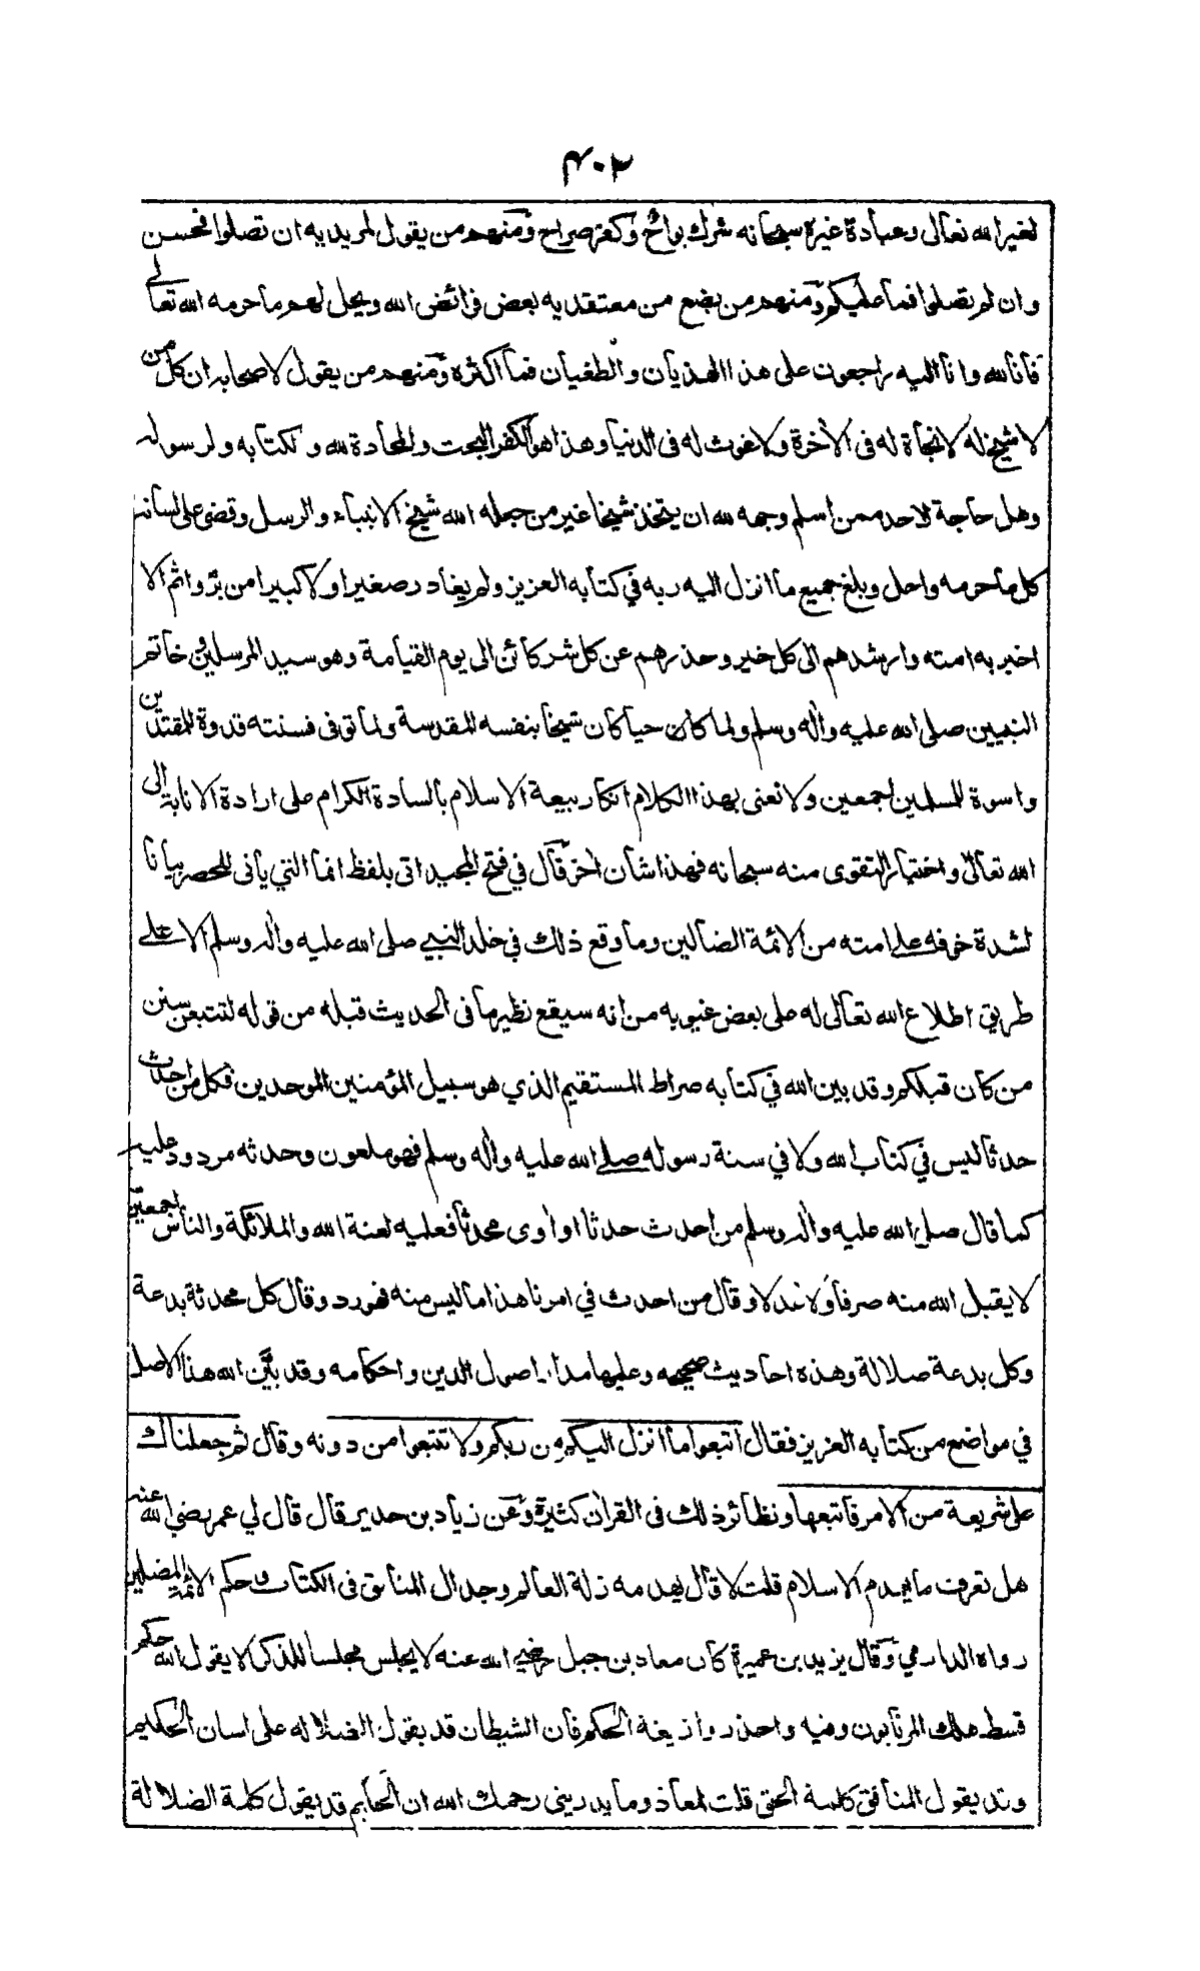 ۴۰۲
لغير الله تعالى وعبادة غيره سبحانه شرك بواح وكفر صراح ومنهم من يقول لمريديه ان تصلوا فحسن
وان لم تصلوا فما عليكم ومنهم من يضع من معتقديه بعض فرائض الله ويحل لهم ما حرمه الله تعالى
فانا لله وانا اليه راجعون على هذا الهذيان والطغيان فما اكثره ومنهم من يقول لاصحابه ان كل من
لا شيخ له لا نجاة له في الآخرة ولا غوث له في الدنيا وهذا هو الكفر البحت والمحادة لله ولكتابه ولرسوله
وهل حاجة لاحد ممن اسلم وجهه لله ان يتخذ شيخا غير من جعله الله شيخ الانبياء والرسل وقضى على لسانه
كل ما حرمه واحل وبلغ جميع ما انزل اليه ربه في كتابه العزيز ولم يغادر صغيرا ولا كبيرا من بر واثم الا
اخبر به امته وارشدهم الى كل خير وحذرهم عن كل شر كائن الى يوم القيامة وهو سيد المرسلين وخاتم
النبيين صلى الله عليه وآله وسلم ولما كان حيا كان شيخا بنفسه المقدسة ولما توفى فسنته قدوة للمقتدين
واسوة للمسلمين اجمعين ولا نعنى بهذا الكلام انكار بيعة الاسلام بالسادة الكرام على ارادة الانابة الى
الله تعالى واختيار التقوى منه سبحانه فهذا شان آخر قال في فتح المجيد اتى بلفظ انما التي يأتى للحصر بيانا
لشدة خوفه على امته من الائمة الضالين وما وقع ذلك في خلد النبي صلى الله عليه وآله وسلم الا على
طريق اطلاع الله تعالى له على بعض غيوبه من انه سيقع نظيرها في الحديث قبله من قوله لتتبعن سنن
من كان قبلكم وقد بين الله في كتابه صراط المستقيم الذي هو سبيل المؤمنين الموحدين فكل من احدث
حدثا ليس في كتاب الله ولا في سنة رسوله صلى الله عليه وآله وسلم فهو ملعون وحدثه مردود عليه
كما قال صلى الله عليه وآله وسلم من احدث حدثا او آوى محدثا فعليه لعنة الله والملائكة والناس اجمعين
لا يقبل الله منه صرفا ولا عدلا وقال من احدث في امرنا هذا ما ليس منه فهو رد وقال كل محدثة بدعة
وكل بدعة ضلالة وهذه احاديث صحيحه وعليها مدار اصول الدين واحكامه وقد بيّن الله هذا الاصل
في مواضع من كتابه العزيز فقال اتبعوا ما انزل اليكم من ربكم ولا تتبعوا من دونه وقال ثم جعلناك
على شريعة من الامر فاتبعها ونظائر ذلك في القرآن كثيرة وعن زياد بن حدير قال قال لي عمر رضي الله عنه
هل تعرف ما يهدم الاسلام قلت لا قال يهدمه زلة العالم وجدال المنافق في الكتاب وحكم الائمة المضلين
رواه الدارمي وقال يزيد بن عميرة كان معاذ بن جبل رضي الله عنه لا يجلس مجلسا للذكر الا يقول الله حكم
قسط هلك المرتابون وفيه واحذروا زيغة الحكيم فان الشيطان قد يقول الضلاله على لسان الحكيم
وقد يقول المنافق كلمة الحق قلت لمعاذ وما يدريني رحمك الله ان الحكيم قد يقول كلمة الضلالة